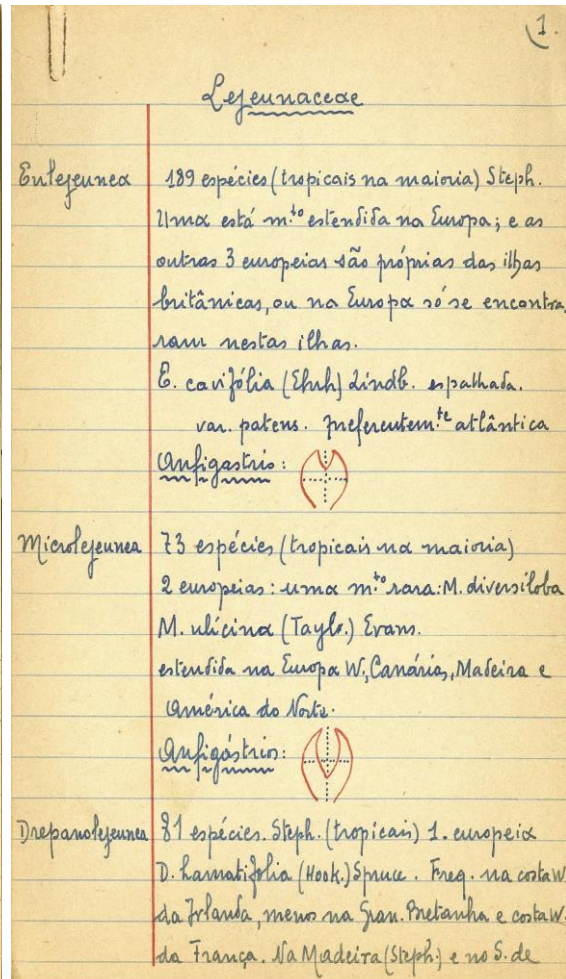 1.
Lejeunaceae
Eulejeunea 189 espécies (tropicais na maioria) Steph.
Uma está m.to estendida na Europa; e as
outras 3 europeias são próprias das ilhas
britânicas, ou na Europa só se encontra,
ram nestas ilhas.
E. cavifólia (Ehrh) Lindb. espalhada.
var. patens. preferentem.te atlântica
Anfigastrio:
Microlejeunea 73 espécies (tropicais na maioria)
2 europeias: uma m.to rara: M. diversiloba
M. ulícina (Taylr.) Evans.
estendida na Europa W, Canárias, Madeira e
América do Norte.
Anfigástrios:
Drepanolejeunea 81 espécies. Steph. (tropicais) 1. europeia
D. hamatifolia (Hook.) Spruce. Freq. na costa W.
da Irlanda, menos na Gran. Bretanha e costa W.
da França. Na Madeira (Steph.) e no S. de